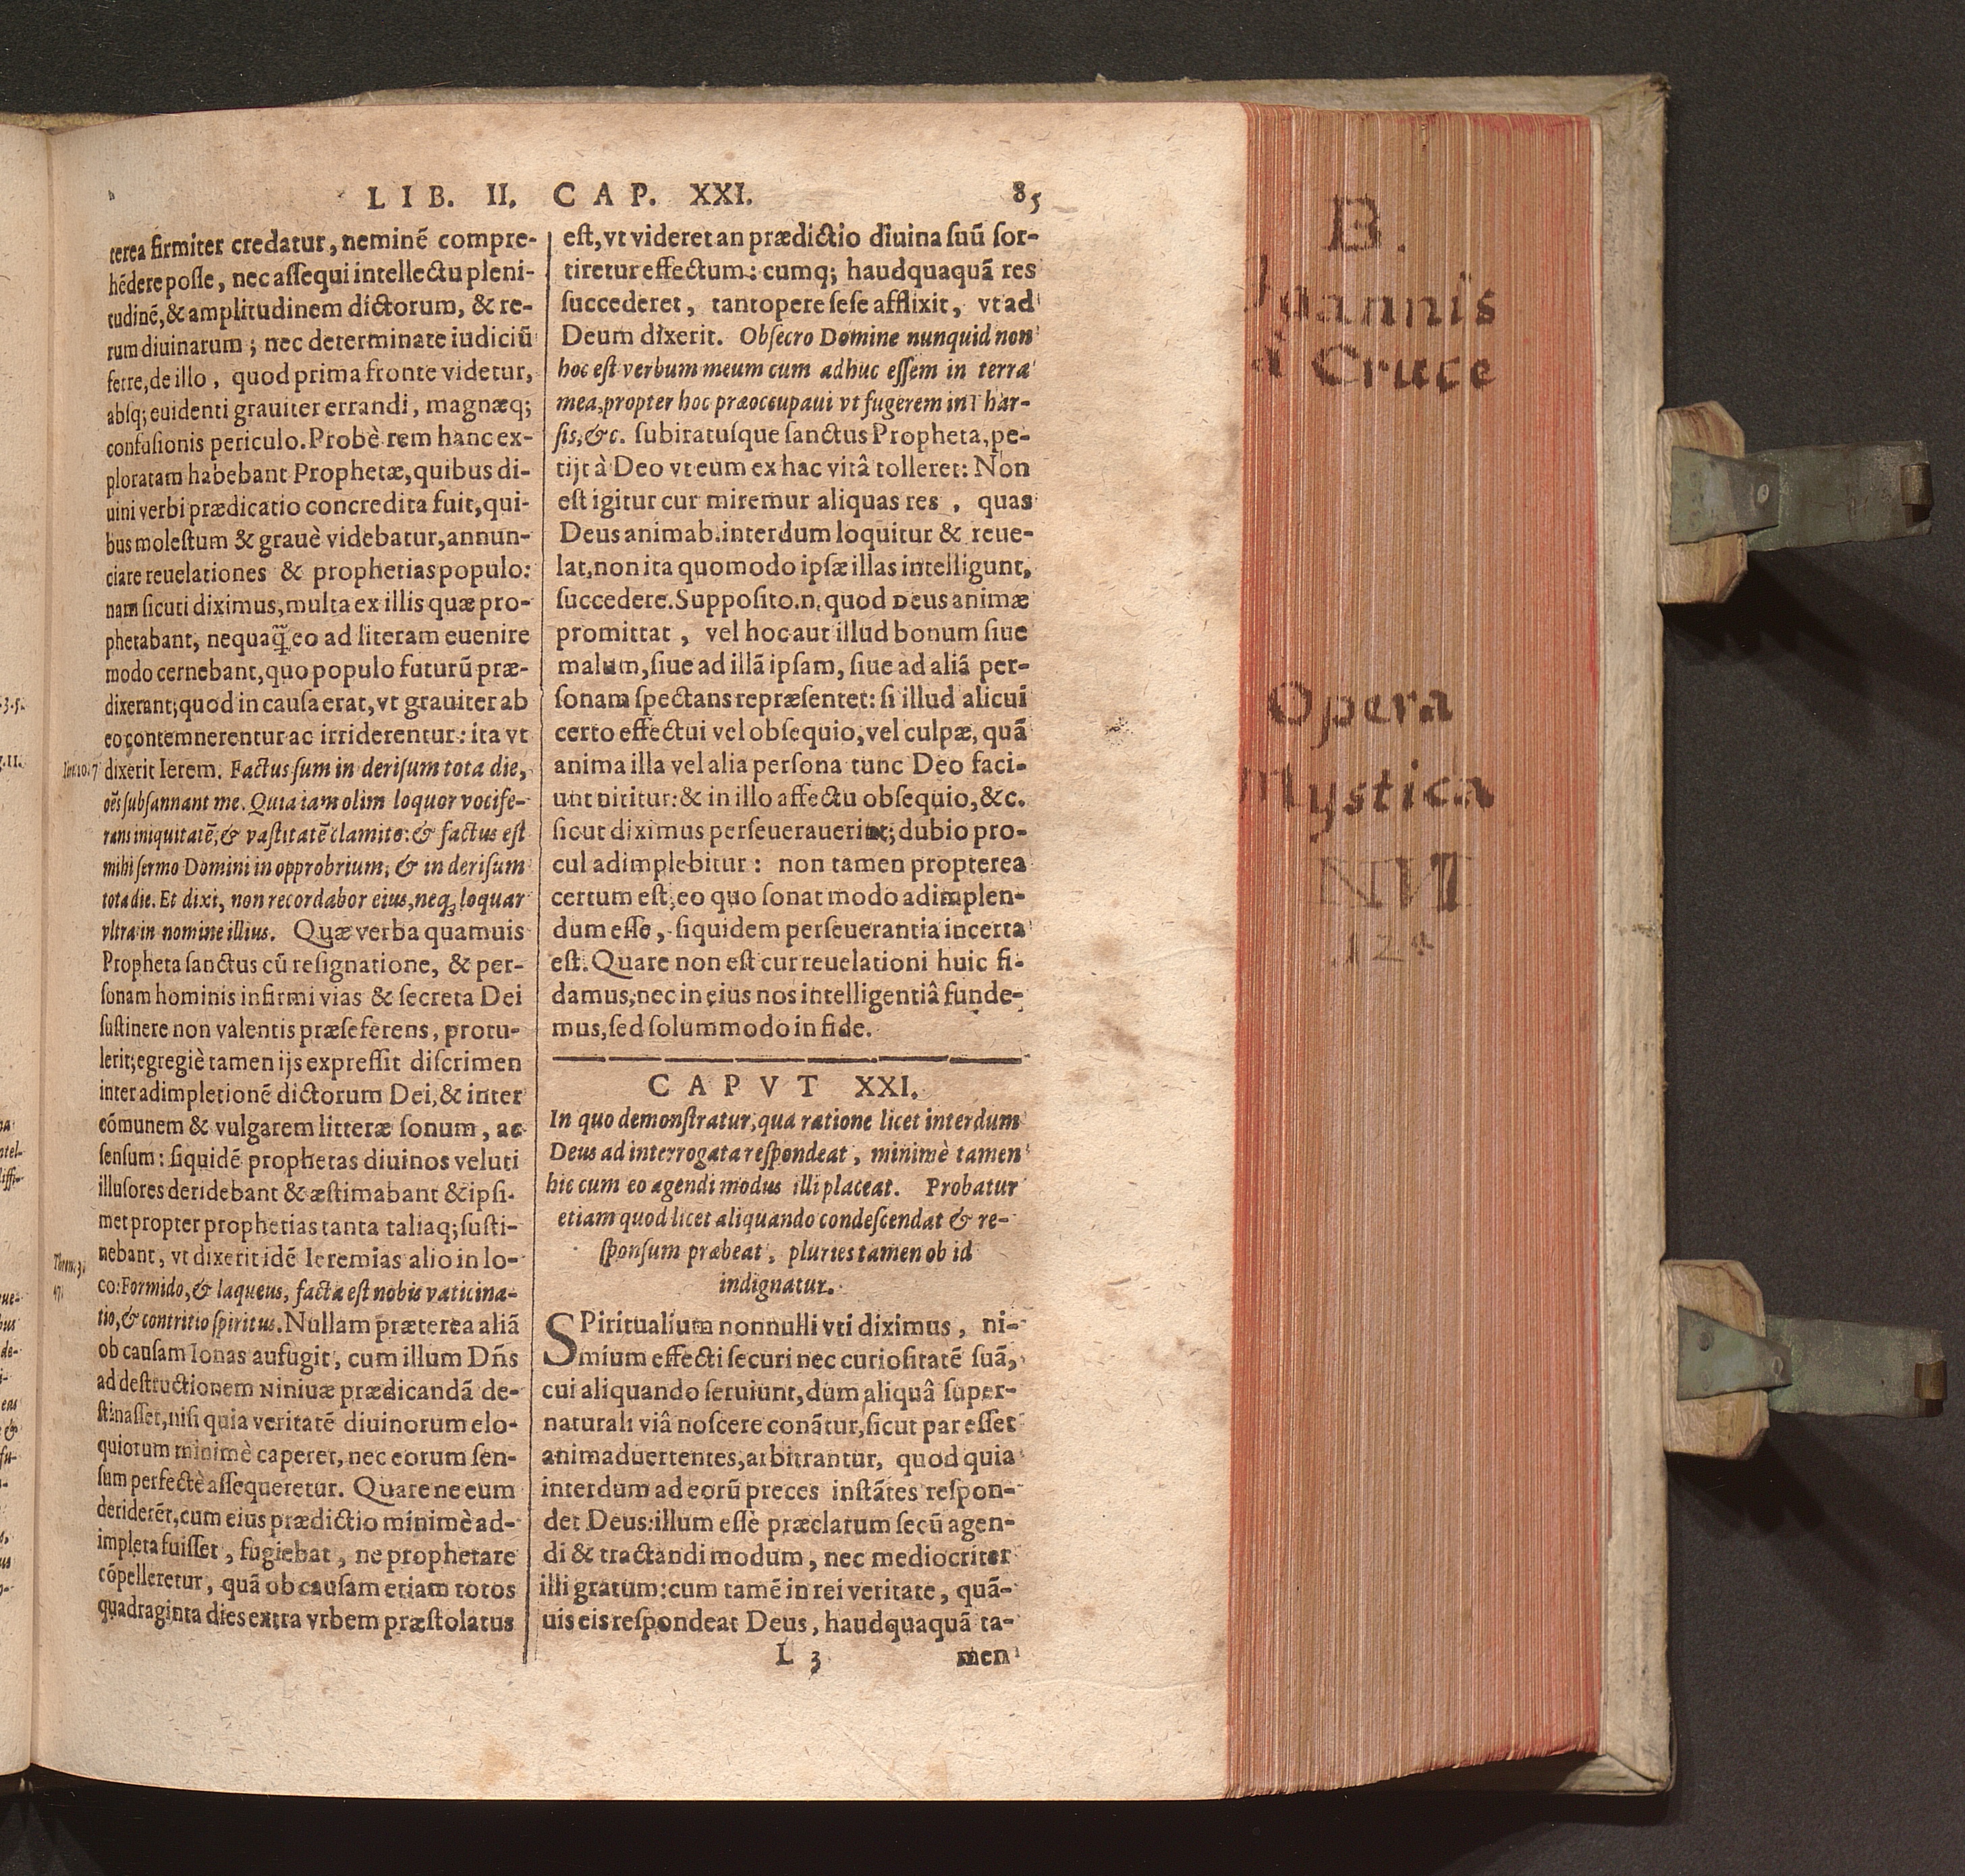 LIB. II. CAP. XXI. 85
terea firmiter credatur, neminē compre-
hēdere posse, nec assequi intellectu pleni-
tudinē, & amplitudinem dictorum, & re-
rum diuinarum; nec determinate iudiciū
ferre, de illo, quod prima fronte videtur,
absq; euidenti grauiter errandi, magnæq;
confusionis periculo. Probè rem hanc ex-
ploratam habebant Prophetæ, quibus di-
uini verbi prædicatio concredita fuit, qui-
bus molestum & grauè videbatur, annun-
ciare reuelationes & prophetias populo:
nam sicuti diximus, multa ex illis quæ pro-
phetabant, nequaq̃ eo ad literam euenire
modo cernebant, quo populo futurū præ-
dixerant; quod in causa erat, vt grauiter ab
eo contemnerentur ac irriderentur: ita vt
Ier. 20. 7 dixerit Ierem. Factus sum in derisum tota die,
oēs subsannant me. Quia iam olim loquor vocife-
rans iniquitatē, & vastitatē clamito: & factus est
mihi sermo Domini in opprobrium, & in derisum
tota die. Et dixi, non recordabor eius, neq; loquar
vltra in nomine illius. Quæ verba quamuis
Propheta sanctus cū resignatione, & per-
sonam hominis infirmi vias & secreta Dei
sustinere non valentis præseferens, protu-
lerit; egregiè tamen ijs expressit discrimen
inter adimpletionē dictorum Dei, & inter
cōmunem & vulgarem litteræ sonum, ac
sensum: siquidē prophetas diuinos veluti
illusores deridebant & æstimabant & ipsi-
met propter prophetias tanta taliaq; susti-
Thren. 3. nebant, vt dixerit idē Ieremias alio in lo-
47. co: Formido, & laqueus, facta est nobis vaticina-
tio, & contritio spiritus. Nullam præterea aliā
ob causam Ionas aufugit, cum illum Dñs
ad destructionem Niniuæ prædicandā de-
stinasset, nisi quia veritatē diuinorum elo-
quiorum minimè caperet, nec eorum sen-
sum perfectè assequeretur. Quare ne eum
deriderēt, cum eius prædictio minimè ad-
impleta fuisset, fugiebat, ne prophetare
cōpelleretur, quā ob causam etiam totos
quadraginta dies extra vrbem præstolatus
est, vt videret an prædictio diuina suū sor-
tiretur effectum: cumq; haudquaquā res
succederet, tantopere sese afflixit, vt ad
Deum dixerit. Obsecro Domine nunquid non
hoc est verbum meum cum adhuc essem in terra
mea, propter hoc præoccupaui vt fugerem in Thar-
sis, &c. subiratusque sanctus Propheta, pe-
tijt à Deo vt eum ex hac vitâ tolleret: Non
est igitur cur miremur aliquas res, quas
Deus animab. interdum loquitur & reue-
lat, non ita quomodo ipsæ illas intelligunt,
succedere. Supposito .n. quod Deus animæ
promittat, vel hoc aut illud bonum siue
malum, siue ad illā ipsam, siue ad aliā per-
sonam spectans repræsentet: si illud alicui
certo effectui vel obsequio, vel culpæ, quā
anima illa vel alia persona tunc Deo faci-
unt nititur: & in illo affectu obsequio, &c.
sicut diximus perseuerauerint; dubio pro-
cul adimplebitur: non tamen propterea
certum est, eo quo sonat modo adimplen-
dum esse, siquidem perseuerantia incerta
est. Quare non est cur reuelationi huic fi-
damus, nec in eius nos intelligentiâ funde-
mus, sed solummodo in fide.
CAPVT XXI.
In quo demonstratur, qua ratione licet interdum
Deus ad interrogata respondeat, minimè tamen
hic cum eo agendi modus illi placeat. Probatur
etiam quod licet aliquando condescendat & re-
sponsum præbeat, pluries tamen ob id
indignatur.
SPiritualium nonnulli vti diximus, ni-
mium effecti securi nec curiositatē suā,
cui aliquando seruiunt, dum aliquâ super-
naturali viâ noscere conātur, sicut par esset
animaduertentes, arbitrantur, quod quia
interdum ad eorū preces instātes respon-
det Deus: illum esse præclarum secū agen-
di & tractandi modum, nec mediocriter
illi gratum: cum tamē in rei veritate, quā-
uis eis respondeat Deus, haudquaquā ta-
L 3 men
B.
Joannis
à Cruce
Opera
Mystica